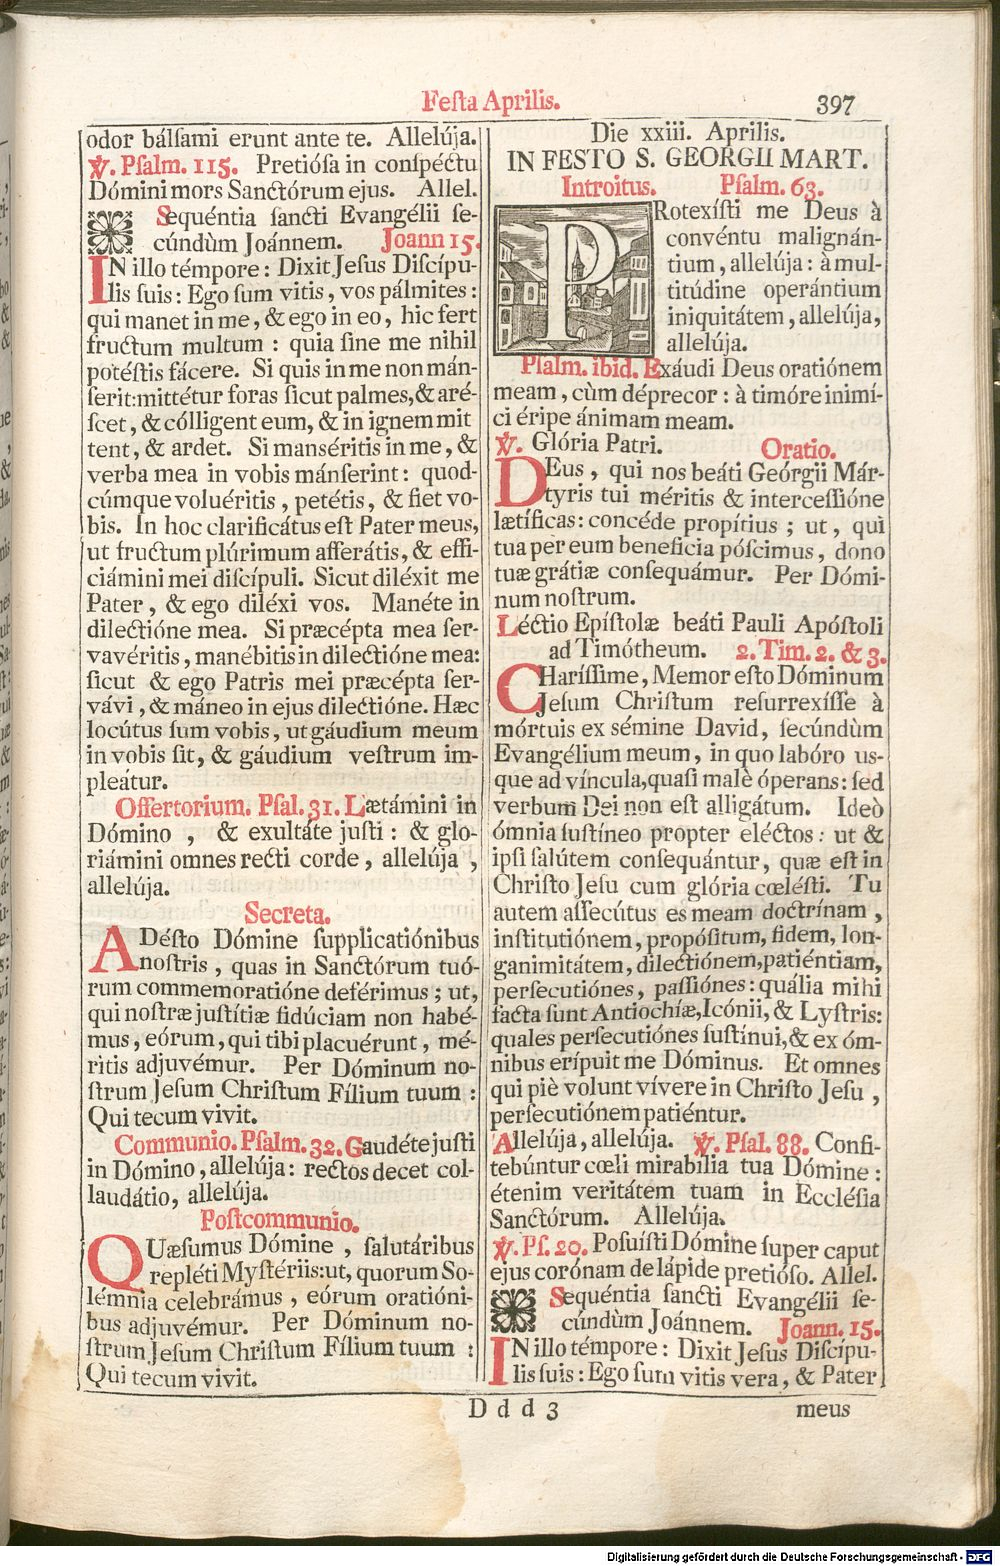 Feſta Aprilis.
397
odor bálſami erunt ante te. Allelúja.
℣. Pſalm. 115. Pretióſa in conſpéctu
Dómini mors Sanctórum ejus. Allel.
Sequéntia ſancti Evangélii ſe-
cúndùm Joánnem. Joann 15.
IN illo témpore: Dixit Jeſus Diſcípu-
lis ſuis: Ego ſum vitis, vos pálmites:
qui manet in me, & ego in eo, hic fert
fructum multum : quia ſine me nihil
potéſtis fácere. Si quis in me non mán-
ſerit:mittétur foras ſicut palmes,& aré-
ſcet, & cólligent eum, & in ignem mit
tent, & ardet. Si manſéritis in me, &
verba mea in vobis mánſerint: quod-
cúmque voluéritis, petétis, & fiet vo-
bis. In hoc clarificátus eſt Pater meus,
ut fructum plúrimum afferátis, & effi-
ciámini mei diſcípuli. Sicut diléxit me
Pater, & ego diléxi vos. Manéte in
dilectióne mea. Si præcépta mea ſer-
vavéritis, manébitis in dilectióne mea:
ſicut & ego Patris mei præcépta ſer-
vávi, & máneo in ejus dilectióne. Hæc
locútus ſum vobis, ut gáudium meum
in vobis ſit, & gáudium veſtrum im-
pleátur.
Offertorium. Pſal. 31. Lætámini in
Dómino , & exultáte juſti : & glo-
riámini omnes recti corde, allelúja ,
allelúja.
Secreta.
ADéſto Dómine ſupplicatiónibus
noſtris, quas in Sanctórum tuó-
rum commemoratióne deférimus ; ut,
qui noſtræ juſtítiæ fidúciam non habé-
mus, eórum, qui tibi placuérunt, mé-
ritis adjuvémur. Per Dóminum no-
ſtrum Jeſum Chriſtum Fílium tuum :
Qui tecum vivit.
Communio. Pſalm. 32. Gaudéte juſti
in Dómino, allelúja: rectos decet col-
laudátio, allelúja.
Poſtcommunio.
QUæſumus Dómine , ſalutáribus
repléti Myſtériis:ut, quorum So-
lémnia celebrámus, eórum oratióni-
bus adjuvémur. Per Dóminum no-
ſtrum Jeſum Chriſtum Fílium tuum :
Qui tecum vivit.
Die xxiii. Aprilis.
IN FESTO S. GEORGII MART.
Introitus. Pſalm. 63.
PRotexíſti me Deus à
convéntu malignán-
tium, allelúja: à mul-
titúdine operántium
iniquitátem, allelúja,
allelúja.
Pſalm. ibid. Exáudi Deus oratiónem
meam, cùm déprecor: à timóre inimí-
ci éripe ánimam meam.
℣. Glória Patri. Oratio.
DEus, qui nos beáti Geórgii Már-
tyris tui méritis & interceſſióne
lætíficas: concéde propítius ; ut, qui
tua per eum beneficia póſcimus, dono
tuæ grátiæ conſequámur. Per Dómi-
num noſtrum.
Léctio Epíſtolæ beáti Pauli Apóſtoli
ad Timótheum. 2. Tim. 2. & 3.
CHaríſſime, Memor eſto Dóminum
Jeſum Chriſtum reſurrexíſſe à
mórtuis ex sémine David, ſecúndùm
Evangélium meum, in quo labóro us-
que ad víncula,quaſi malè óperans: ſed
verbum Dei non eſt alligátum. Ideò
ómnia ſuſtíneo propter eléctos: ut &
ipſi ſalútem conſequántur, quæ eſt in
Chriſto Jeſu cum glória cœléſti. Tu
autem aſſecútus es meam doctrínam ,
inſtitutiónem, propóſitum, fidem, lon-
ganimitátem, dilectiónem,patiéntiam,
perſecutiónes, paſſiónes: quália mihi
facta ſunt Antiochíæ,Icónii, & Lyſtris:
quales perſecutiónes ſuſtínui,& ex óm-
nibus erípuit me Dóminus. Et omnes
qui piè volunt vívere in Chriſto Jeſu ,
perſecutiónem patiéntur.
Allelúja, allelúja. ℣. Pſal. 88. Confi-
tebúntur cœli mirabília tua Dómine :
étenim veritátem tuam in Eccléſia
Sanctórum. Allelúja.
℣. Pſ. 20. Poſuíſti Dómine ſuper caput
ejus corónam de lápide pretióſo. Allel.
Sequéntia ſancti Evangélii ſe-
cúndùm Joánnem. Joann. 15.
IN illo témpore: Dixit Jeſus Diſcípu-
lis ſuis: Ego ſum vitis vera, & Pater
D d d 3
meus
Digitalisierung gefördert durch die Deutsche Forschungsgemeinschaft - DFG